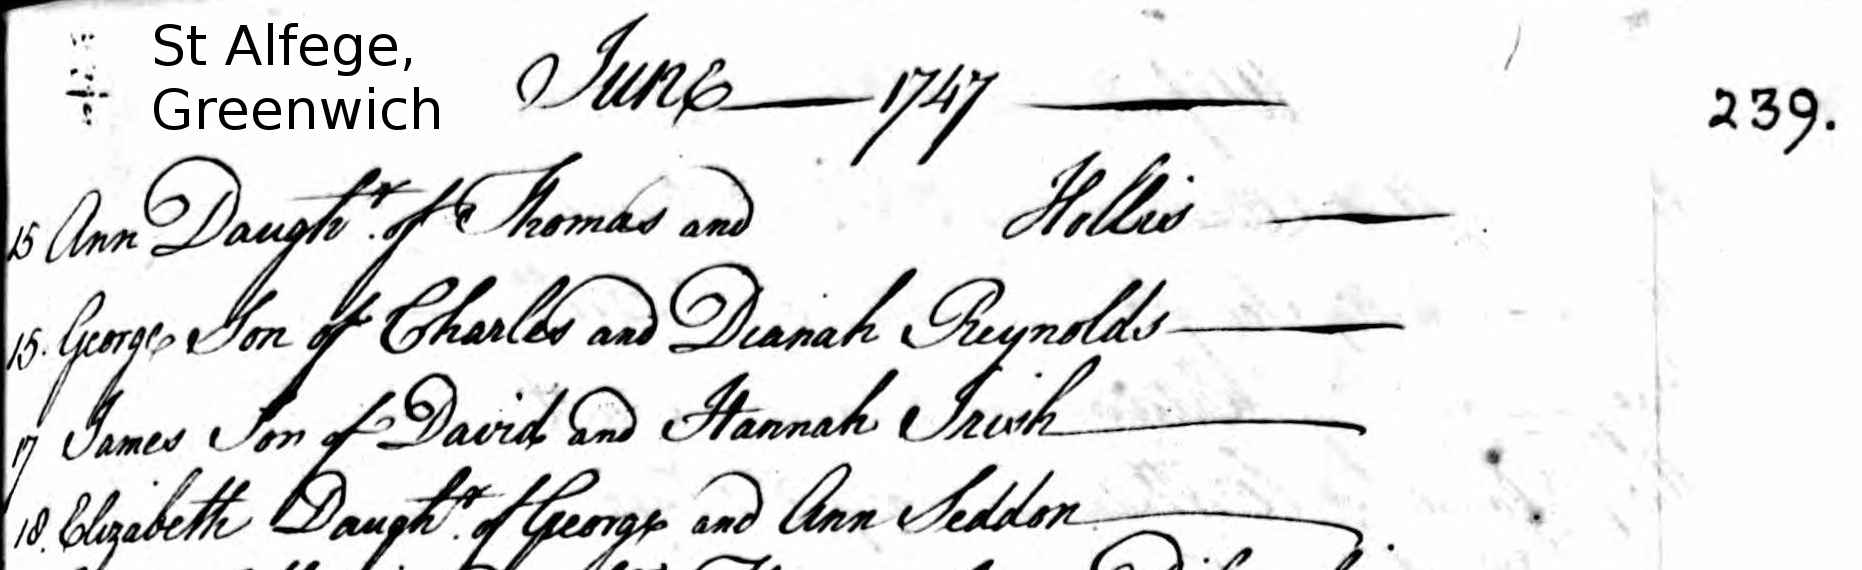 St Alfege,
Greenwich
June — 1747 —
239.
15 Ann Daughtr. of Thomas and Hollis —
15. George Son of Charles and Dianah Reynolds —
17 James Son of David and Hannah Irish
18. Elizabeth Daughtr. of George and Ann Seddon